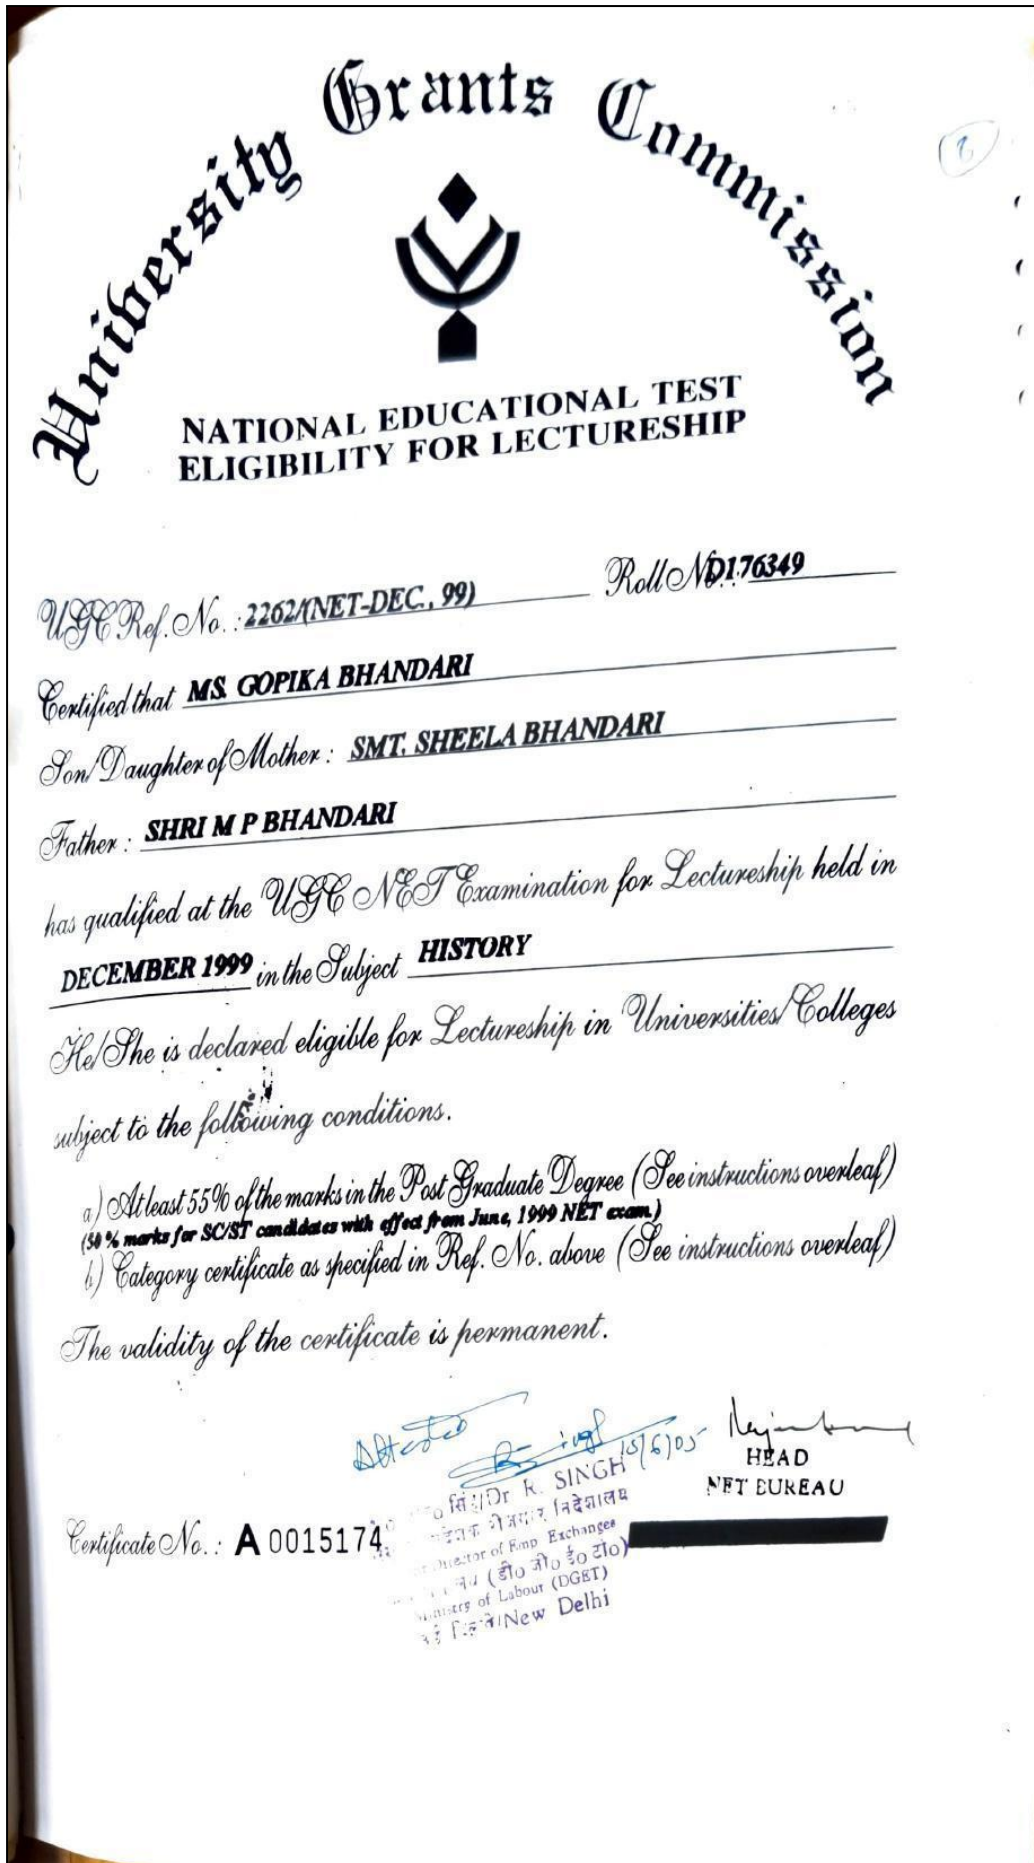 University Grants Commission
NATIONAL EDUCATIONAL TEST
ELIGIBILITY FOR LECTURESHIP
UGC Ref. No. : 2262/(NET-DEC., 99) Roll No. : D176349
Certified that MS. GOPIKA BHANDARI
Son/Daughter of Mother : SMT. SHEELA BHANDARI
Father : SHRI M P BHANDARI
has qualified at the UGC NET Examination for Lectureship held in
DECEMBER 1999 in the Subject HISTORY
He/She is declared eligible for Lectureship in Universities/Colleges
subject to the following conditions.
a) At least 55% of the marks in the Post Graduate Degree (See instructions overleaf)
(50 % marks for SC/ST candidates with effect from June, 1999 NET exam.)
b) Category certificate as specified in Ref. No. above (See instructions overleaf)
The validity of the certificate is permanent.
Attested
15/6/05
HEAD
NET BUREAU
सिंह/Dr R. SINGH
निदेशालय
Director of Emp Exchanges
(डी० जी० ई० टी०)
Ministry of Labour (DGET)
New Delhi
Certificate No. : A 0015174